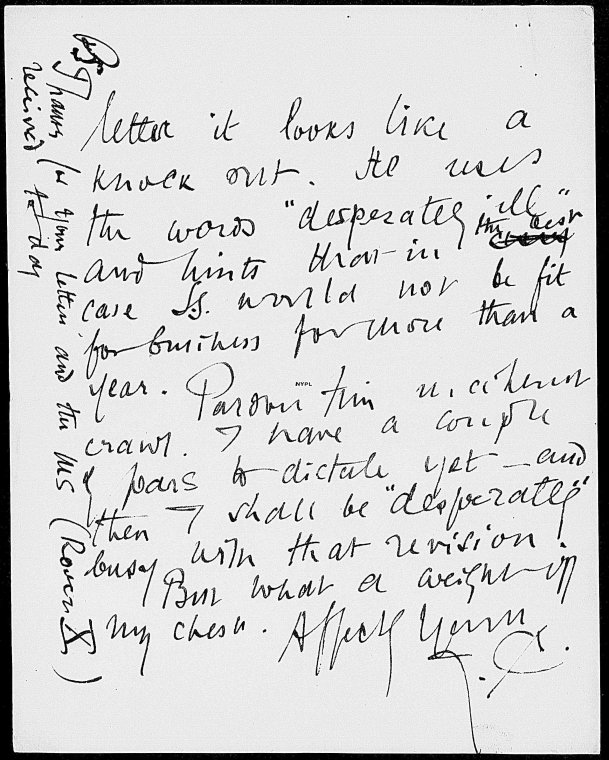 letter it looks like a
knock out. He uses
the words "desperately ill"
and hints that in the best
case J.S. would not be fit
for business for more than a
year. Pardon this incoherent
crawl. I have a couple
of pars to dictate yet — and
then I shall be "desperately"
busy with that revision.
But what a weight off
my chest. Affectly Yours
J. C.
PS Thanks for your letter and the MS (Rover X)
received to-day
NYPL